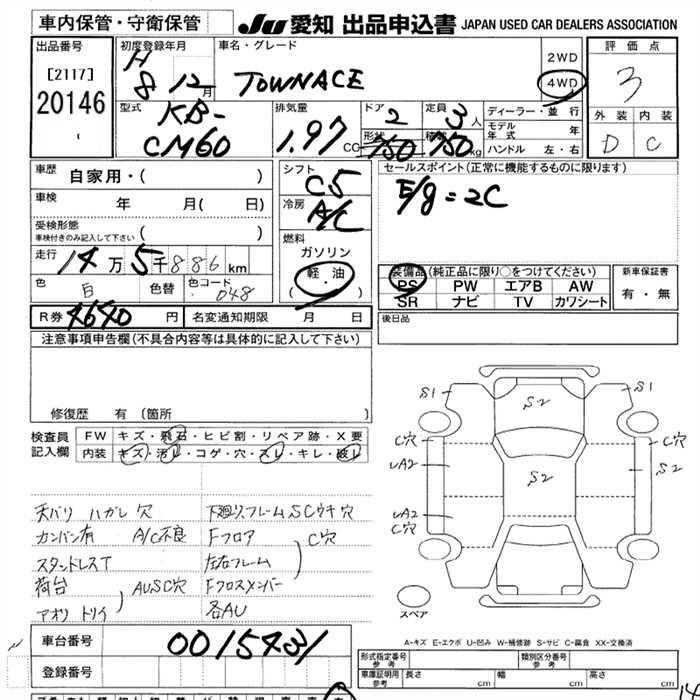 車内保管・守衛保管
JU 愛知 出品申込書 JAPAN USED CAR DEALERS ASSOCIATION
出品番号
[2117]
20146
初度登録年月
H 8 12月
車名・グレード
TOWNACE
2WD
4WD
評価点
3
外装 内装
D C
型式
KB-
CM60
排気量
1.97
CC
ドア
2
形状
定員
3人
積載
750 750kg
ディーラー・並行
モデル年式 年
ハンドル 左・右
車歴
自家用・( )
車検
年 月( 日)
受検形態
車検付きのみ記入して下さい ( )
走行
14万5千886km
色
白
色替
色コード
048
シフト
C5
冷房
A/C
燃料
ガソリン
軽・油
( )
セールスポイント(正常に機能するものに限ります)
E/g=2C
装備品(純正品に限り○をつけてください)
PS PW エアB AW
SR ナビ TV カワシート
新車保証書
有・無
R券 4640円
名変通知期限 月 日
後日品
注意事項申告欄(不具合内容等は具体的に記入して下さい)
修復歴 有(箇所 )
検査員記入欄
FW キズ・飛石・ヒビ割・リペア跡・X要
内装 キズ・汚レ・コゲ・穴・スレ・キレ・破レ
天バリ ハガレ 穴
カンバン有 A/C不良
スタッドレスT
荷台
アオリ トリイ
AUSC穴
下廻リフレームSCウキ穴
Fフロア
左右フレーム
Fクロスメンバー
C穴
各AU
S1
S2
S1
C穴
UA2
S2
C穴
S2
UA2
C穴
スペア
A-キズ E-エクボ U-凹み W-補修跡 S-サビ C-腐食 XX-交換済
車台番号
0015431
登録番号
形式指定番号
参考
類別区分番号
参考
車庫証明用
参考
長さ cm
幅 cm
高さ cm